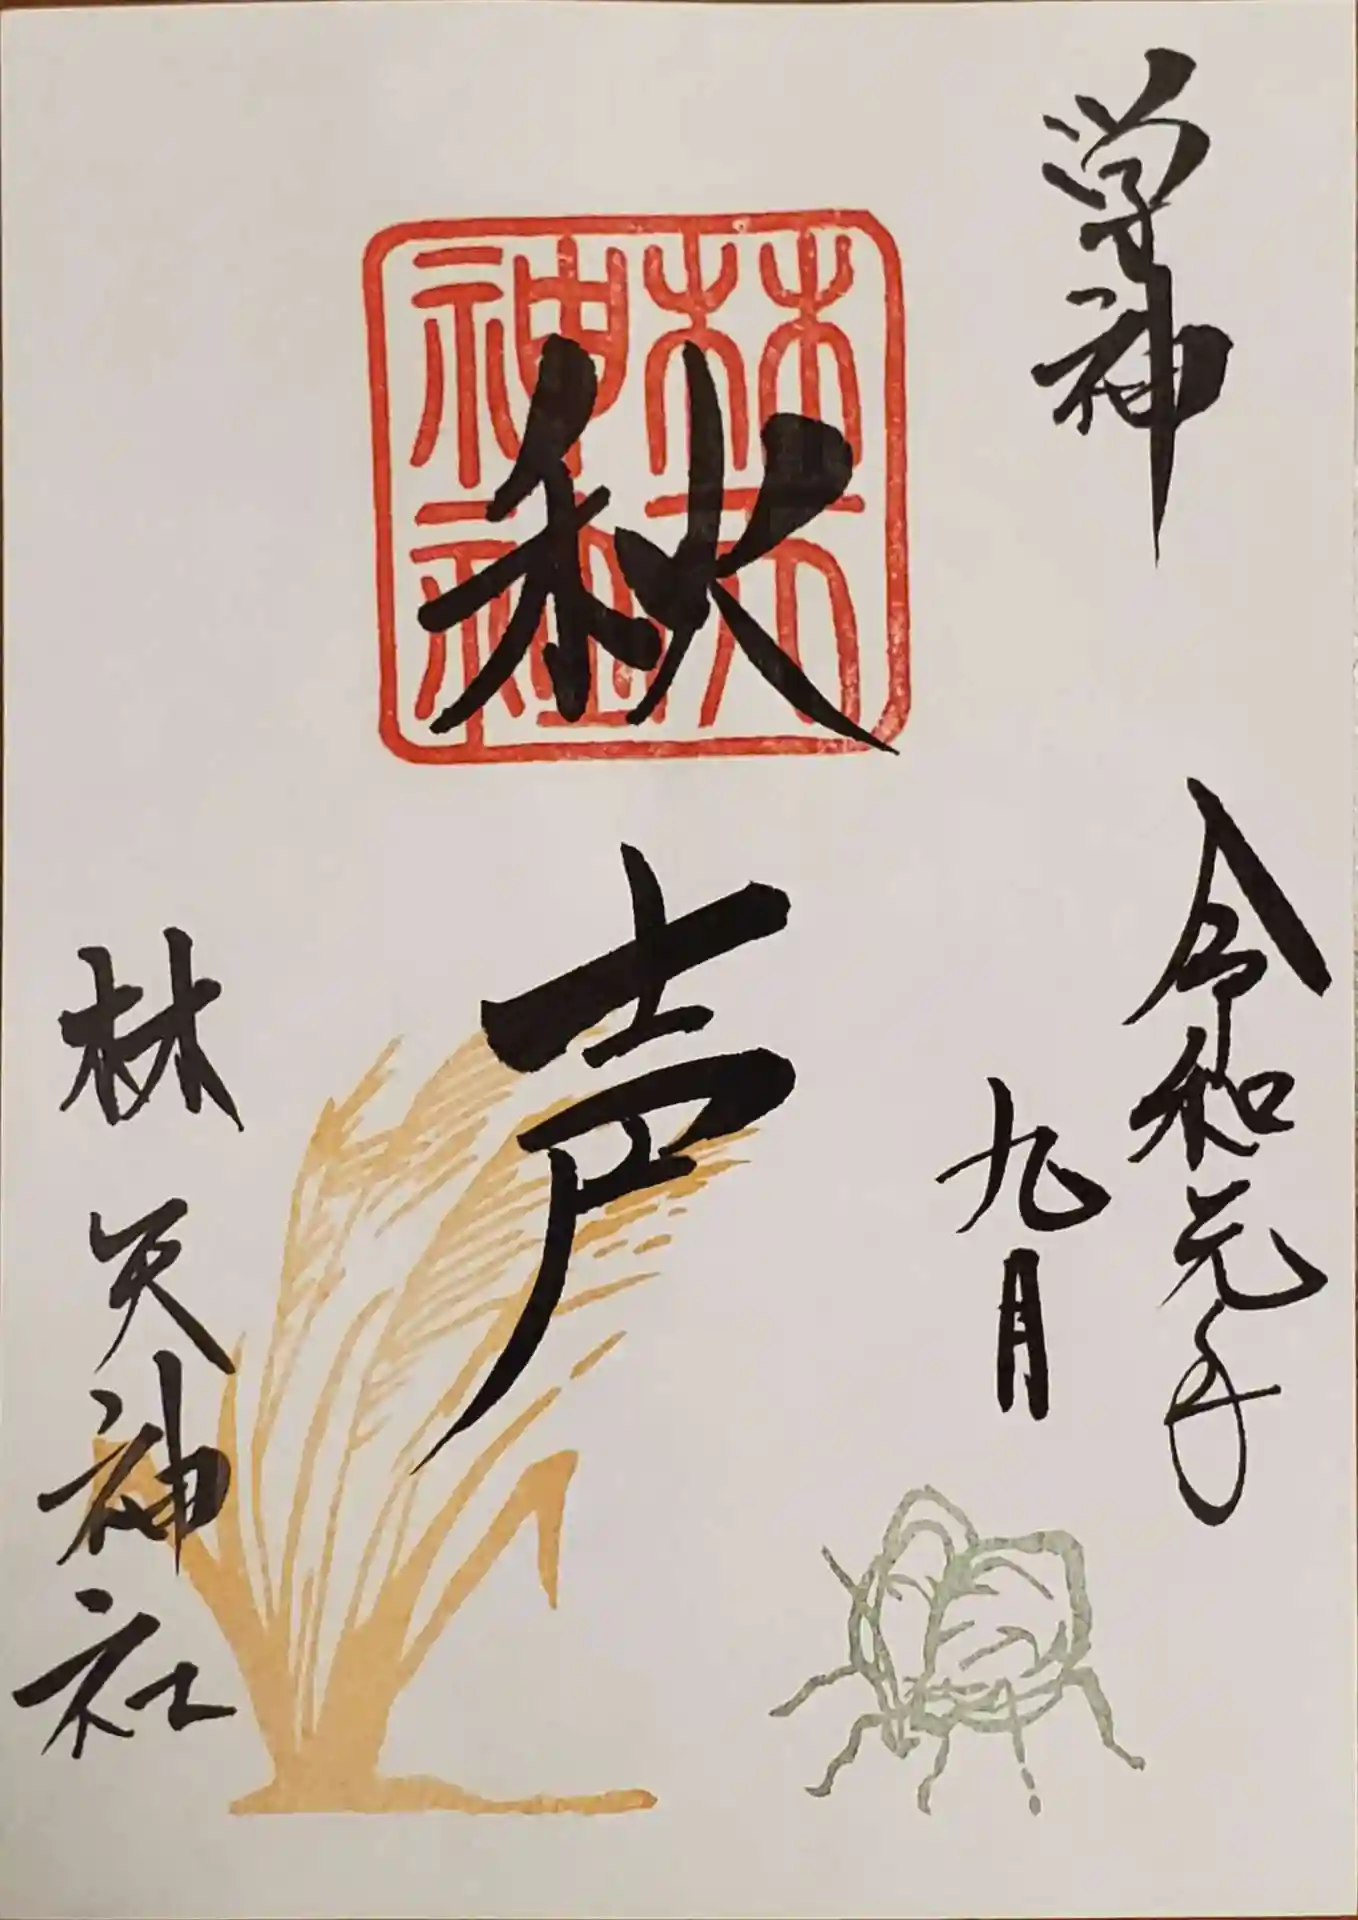 学神
令和元年
九月
林天神社
秋声
林天神社